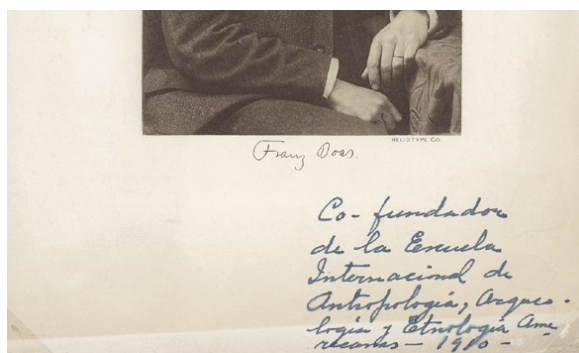 HELIOTYPE CO.
Franz Boas.
Co-fundador
de la Escuela
Internacional de
Antropología, Arqueo-
logía y Etnología Ame
ricanas - 1910 -